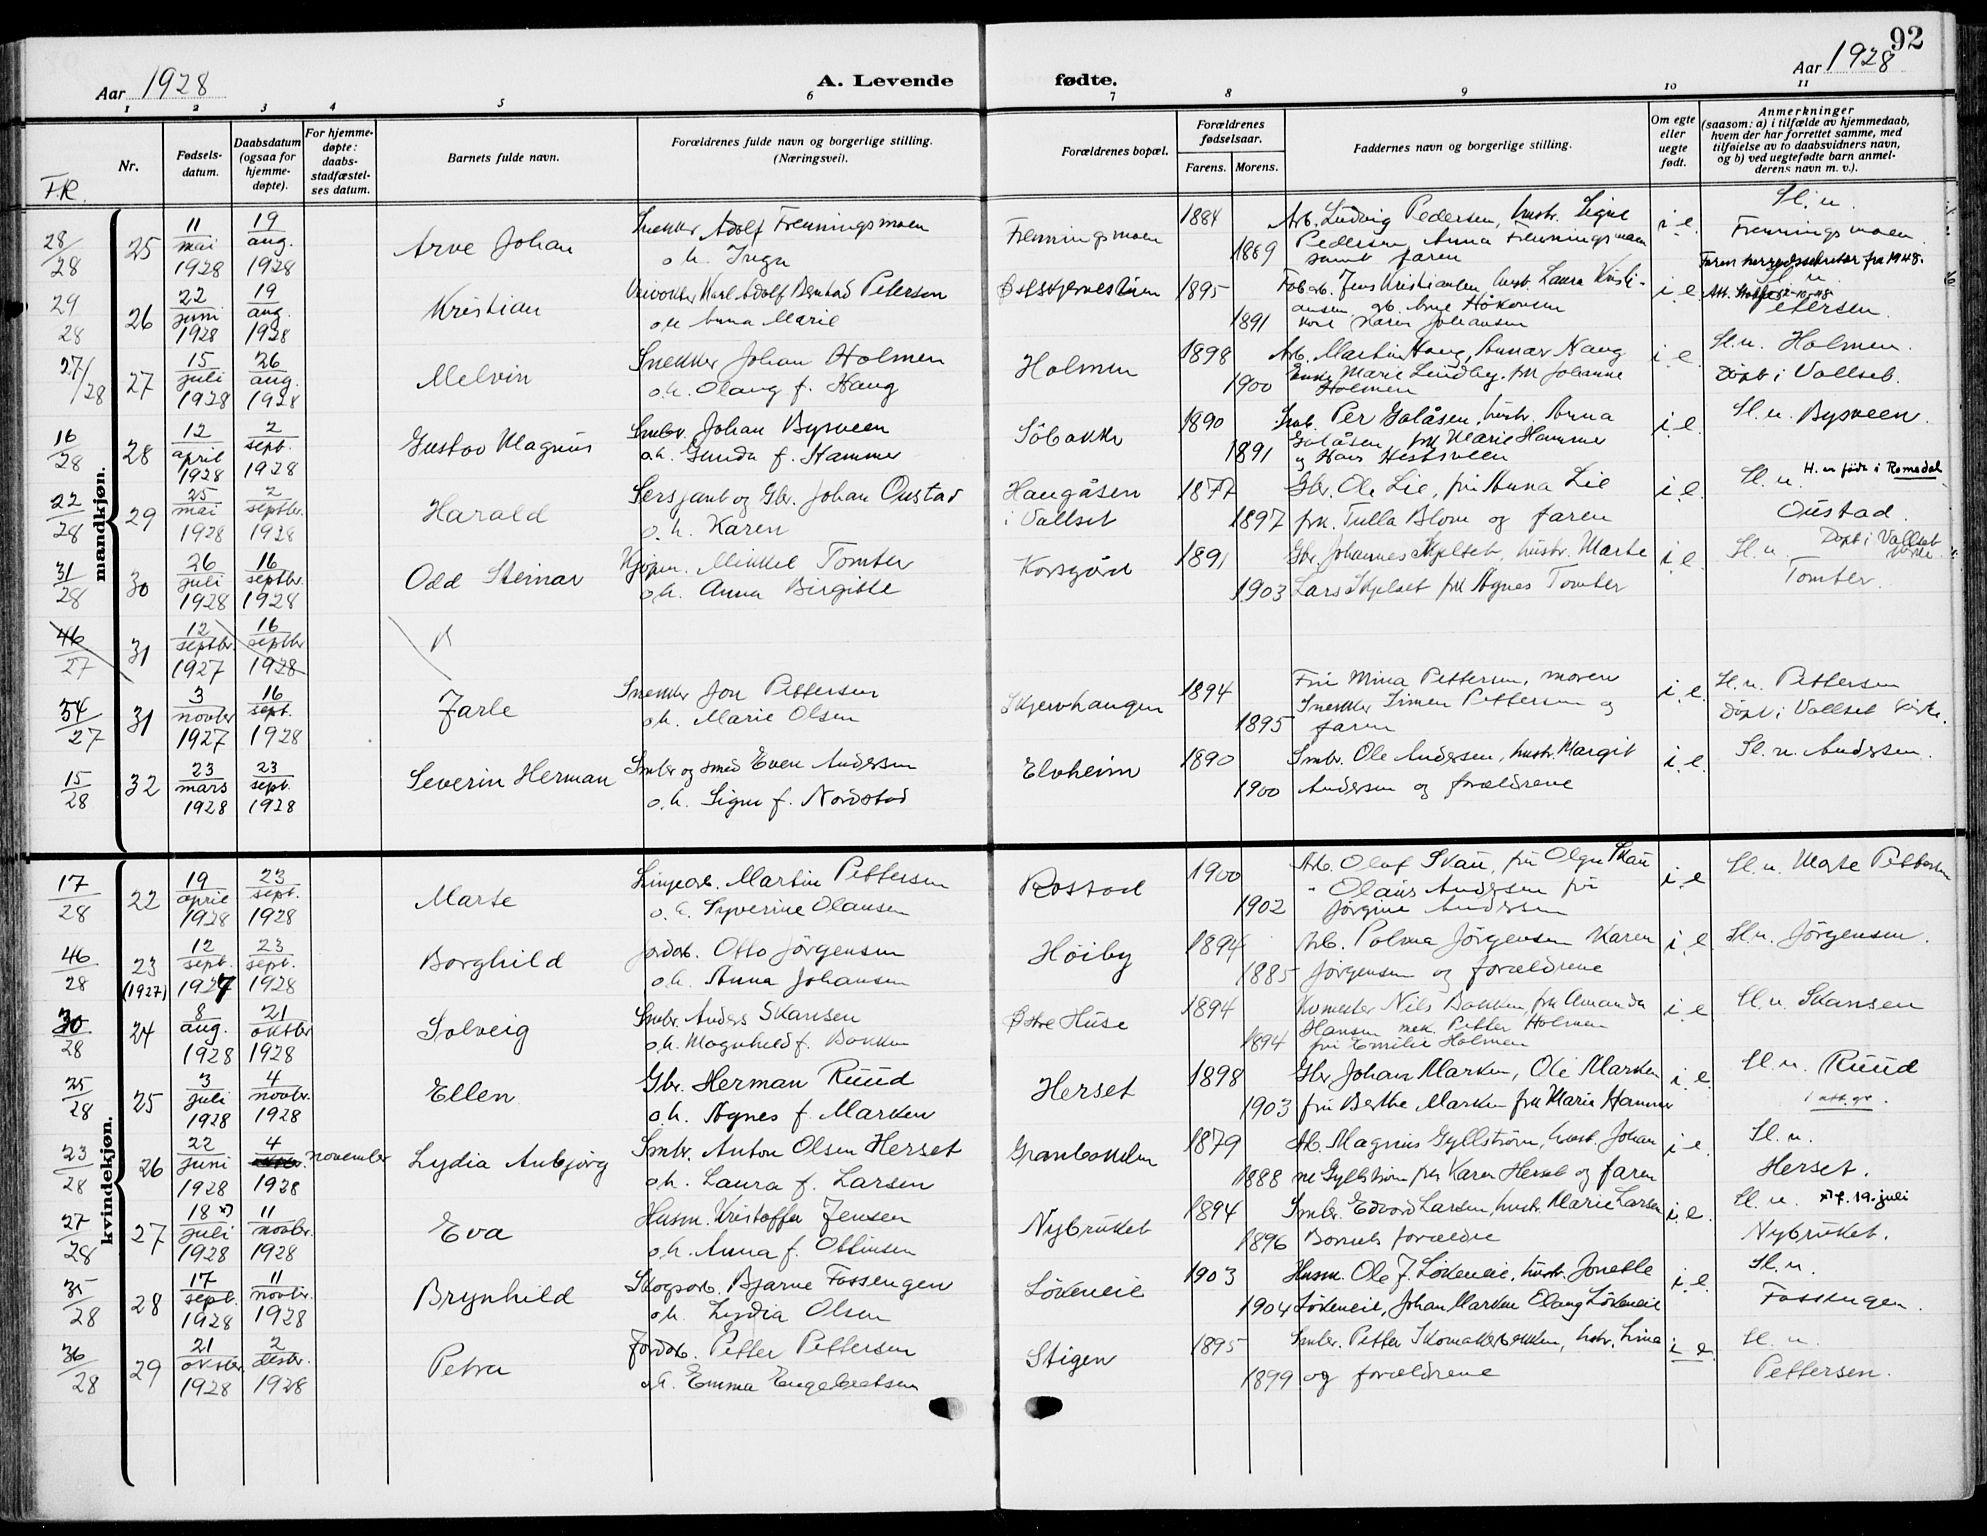 92
Aar 1928
A. Levende fødte.
Aar 1928
1 2 3 4 5 6 7 8 9 10 11
Nr.
Fødsels-datum.
Daabsdatum (ogsaa for hjemme-døpte).
For hjemme-døpte: daabs-stadfæstel-ses datum.
Barnets fulde navn.
Forældrenes fulde navn og borgerlige stilling. (Næringsvei).
Forældrenes bopæl.
Forældrenes fødselsaar.
Farens. Morens.
Faddernes navn og borgerlige stilling.
Om egte eller uegte født.
Anmerkninger
(saasom: a) i tilfælde av hjemmedaab, hvem der har forrettet samme, med tilføielse av to daabsvidners navn, og b) ved uegtefødte barn anmel-derens navn m. v.).
F.R.
mandkjøn.
28/28 25 11 mai 1928 19 aug. 1928 Arve Johan Snekker Adolf Fremmingsmoen 1884 Arb. Ludvig Pedersen, hustr. Signe i e. Sl. u.
o. h. Inga 1889 Pedersen, Anna samt faren
Faren herredssekretær fra 1948.
29/28 26 22 juni 1928 19 aug. 1928 Kristian Karl Adolf Petersen 1895 Fab.arb. Jens Kristiansen, hust. Laura Kristi- i e
o h Anna Marie 1891 ansen, Håkonsen Karen Johansen Pettersen.
27/28 27 15 juli 1928 26 aug. 1928 Melvin Snekker Johan Holmen Holmen 1898 Arb. Martin Haug, Haug i e. Sl. u. Holmen.
o. h. Olaug f. Haug 1900 Marie Lindby, frk Johanne Holmen Døpt i Vallset.
16/28 28 12 april 1928 2 sept. 1928 Gustav Magnus Smbr. Johan Bysveen Söbakke 1890 Smb. Per Galåsen, hustr. Anna i e. Sl. u. Bysveen.
o h. Gunda f. Hammer 1891 Galåsen, frk Marie Hammer
22/28 29 25 mai 1928 2 septbr. 1928 Harald Sersjant og Gbr. Johan Oustad Haugåsen i Vallset 1877 Gbr. Ole Lie, fru Anna Lie i e. Sl. u. H. er født i Romedal
o. h. Karen 1897 frk. Tulla Blom og faren Oustad.
31/28 30 26 juli 1928 16 septbr. 1928 Odd Steinar Kjøpm. Mikkel Tomter Korsgård 1891 Gbr. Johannes Skjelset, hustr. Marte i e. Sl. u. Døpt i Vallset kirke.
o h. Anna Birgitte 1903 Lars Skjelset frk Agnes Tomter Tomter.
46/27 31 12 septbr. 1927 16 septbr 1928
54/27 31 3 novbr 1927 16 sept. 1928 Jarle Snekker Jon Pettersen Skjervhaugen 1894 Fru Mina Pettersen, moren i e. Sl. u. Pettersen
o h. Marie Olsen 1895 Snekker Simen Pettersen og faren Døpt i Vallset kirke.
15/28 32 23 mars 1928 23 sept. 1928 Severin Herman Smbr og smed Even Andersen Elvheim 1890 Smbr. Ole Andersen, hustr. Margit i e. Sl. u. Andersen.
o. h. Signe f. Nordstad 1900 Andersen og forældrene
kvindekjøn.
17/28 22 19 april 1928 23 sept. 1928 Marte Linjearb. Martin Pettersen Rostad 1900 Arb. Olaf Skau, fru Olga Skau i. e Sl. u. Marte Pettersen
o. h. Syverine Olausen 1902 " Olaus Andersen fru Jørgine Andersen
46/28 23 (1927) 12 sept. 1927 23 sept. 1928 Borghild Jordarb. Otto Jørgensen Høiby 1894 Arb. Palma Jørgensen Karen i e Sl. u. Jørgensen.
o h. Anna Johansen 1885 Jørgensen og forældrene
30/28 24 8 aug. 1928 21 oktbr 1928 Solveig Smbr. Anders Skansen Østre Huse 1894 Nils Bakken frk Amanda i e Sl. u. Skansen
o h. Magnhild f. Bakken 1894 Hansen mek. Petter Holmen fru Emilie Holmen
25/28 25 3 juli 1928 4 novbr. 1928 Ellen Gbr. Herman Ruud Herset 1898 Gbr. Johan Marken, Ole Marken i e. Sl. u. Ruud
o h. Agnes f. Marken 1903 fru Berthe Marken frk Maria Hammer
23/28 26 22 juni 1928 4 november 1928 Lydia Anbjørg Smbr. Anton Olsen Herset Granbakken 1879 Arb. Magnus Gyllstrøm, hust. Johan i e. Sl. u.
o h. Laura f. Larsen 1888 ne Gyllstrøm frk Karen Herset og faren Herset.
27/28 27 18 x) juli 1928 11 novbr. 1928 Eva Husm. Kristoffer Jensen Nybruket 1894 Smbr. Edvard Larsen, hustr. Marie Larsen i e. Sl. u. x) f. 19. juli
o h. Anna f. Ottinsen 1896 Barnets forældre Nybruket.
35/28 28 17 sept. 1928 11 novbr. 1928 Brynhild Skogsarb. Bjarne Fossengen Lökeneie 1903 Husm. Ole J. Lökeneie, hustr. Jonette i e. Sl. u.
o h. Lydia Olsen 1904 Lökeneie, Johan Marken Olaug Lökeneie Fossengen.
36/28 29 21 oktbr. 1928 2 desbr. 1928 Petra Jordarb. Petter Pettersen Stigen 1895 Smbr. Petter Skomakerbakken, hustr. Lina i e. Sl. u.
o h. Emma Engebretsen 1899 og forældrene Pettersen.